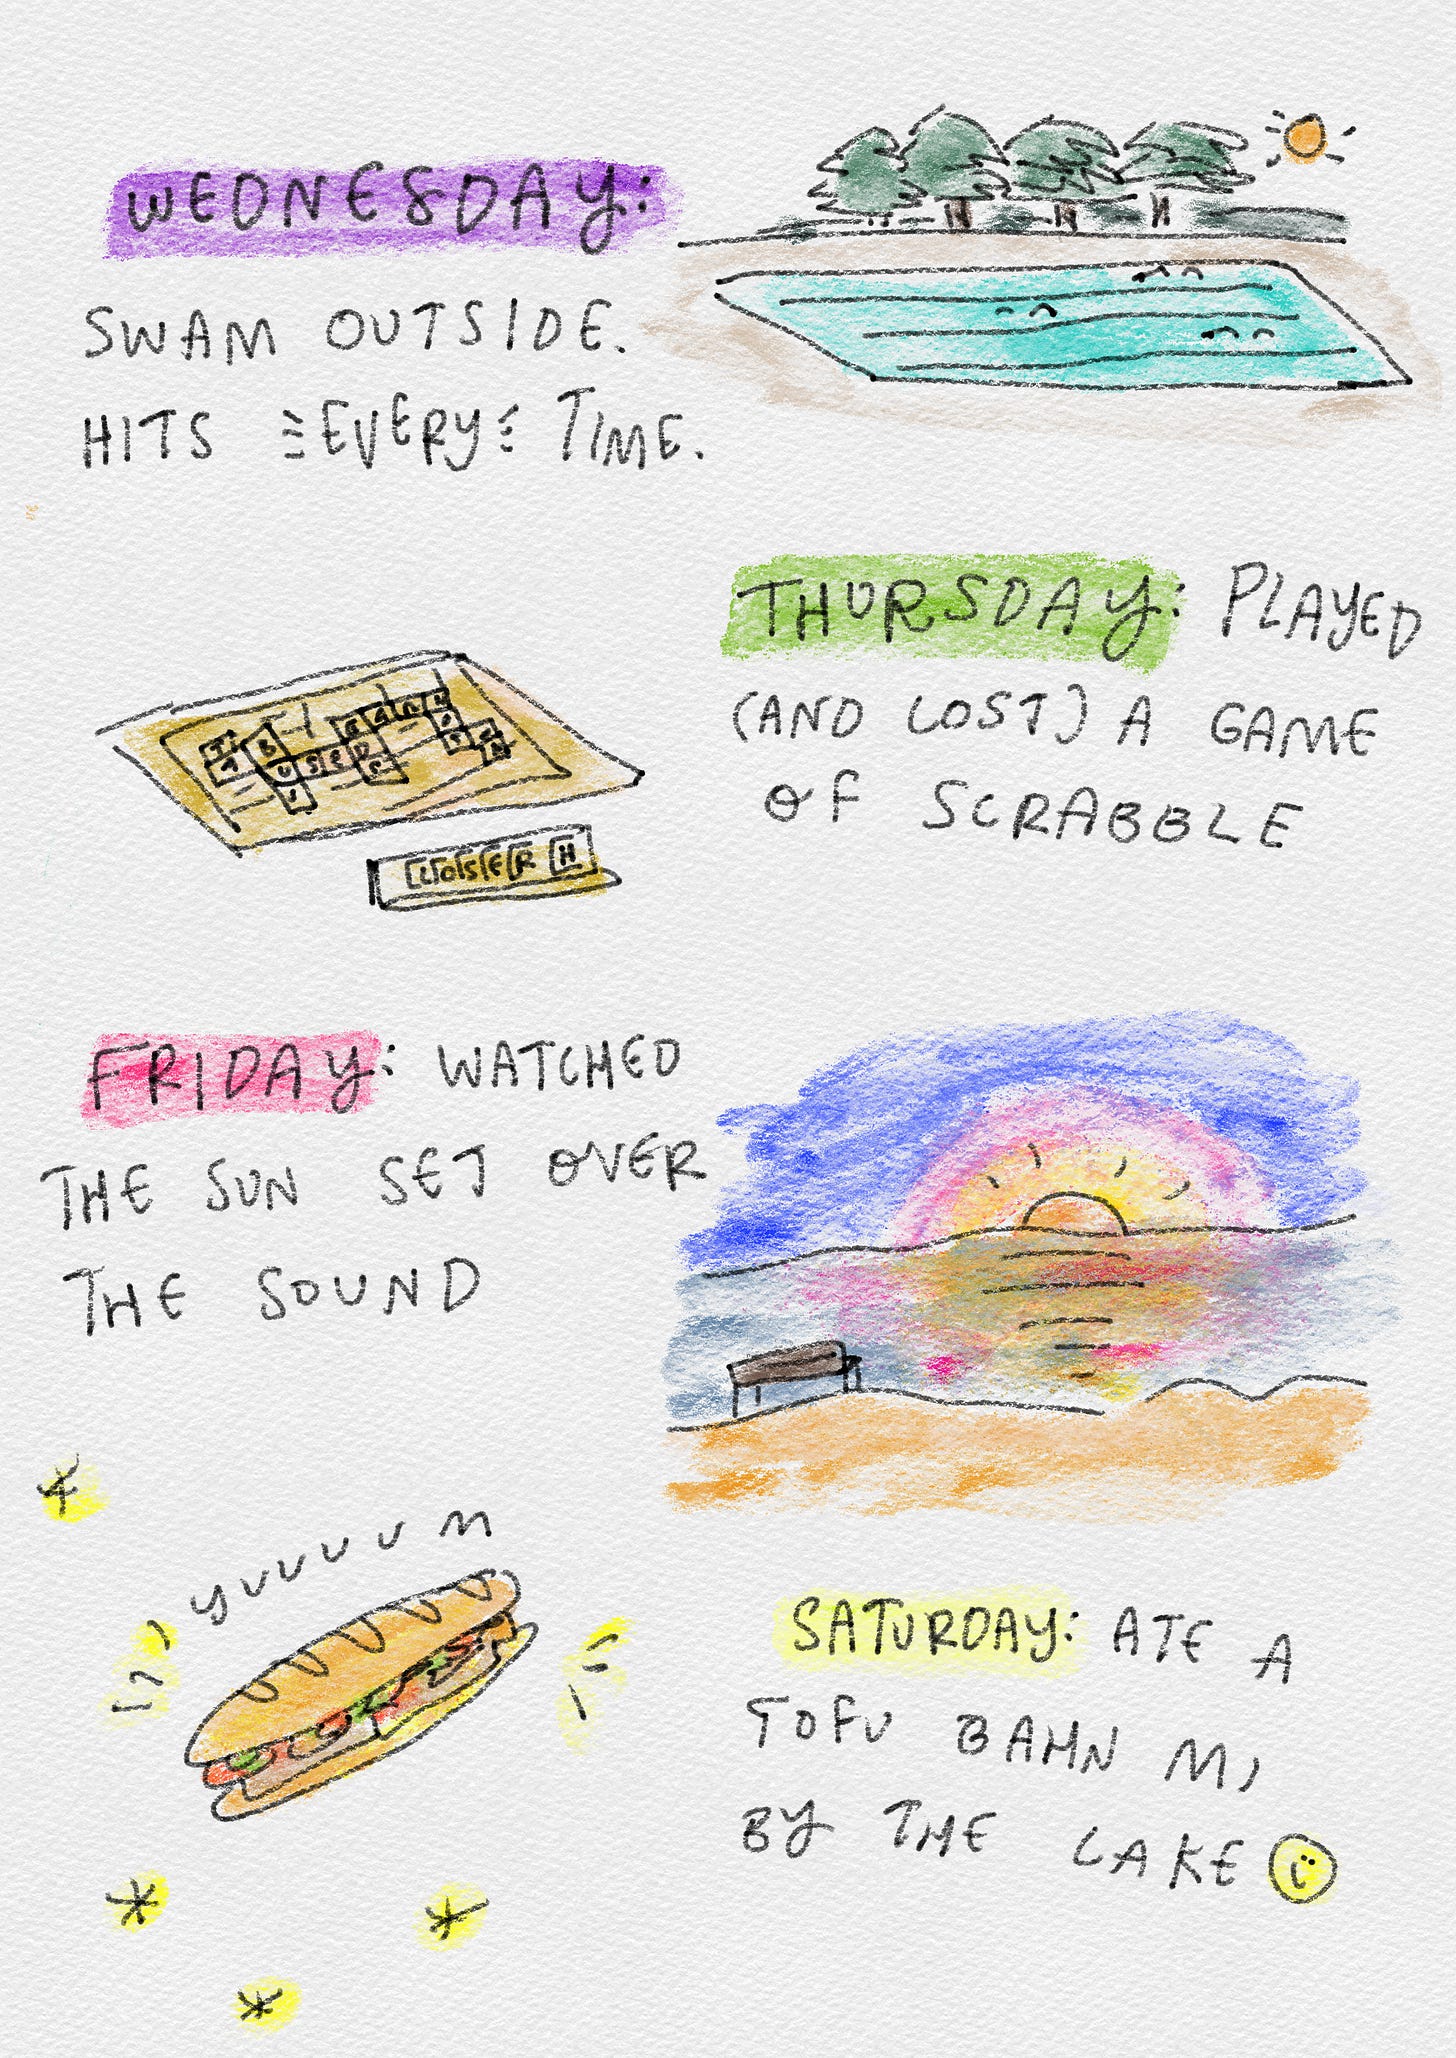 WEDNESDAY:
SWAM OUTSIDE.
HITS EVERY TIME.
THURSDAY: PLAYED
(AND LOST) A GAME
OF SCRABBLE
USED
LOSER H
FRIDAY: WATCHED
THE SUN SET OVER
THE SOUND
YUUUUM
SATURDAY: ATE A
TOFU BAHN MI
BY THE LAKE